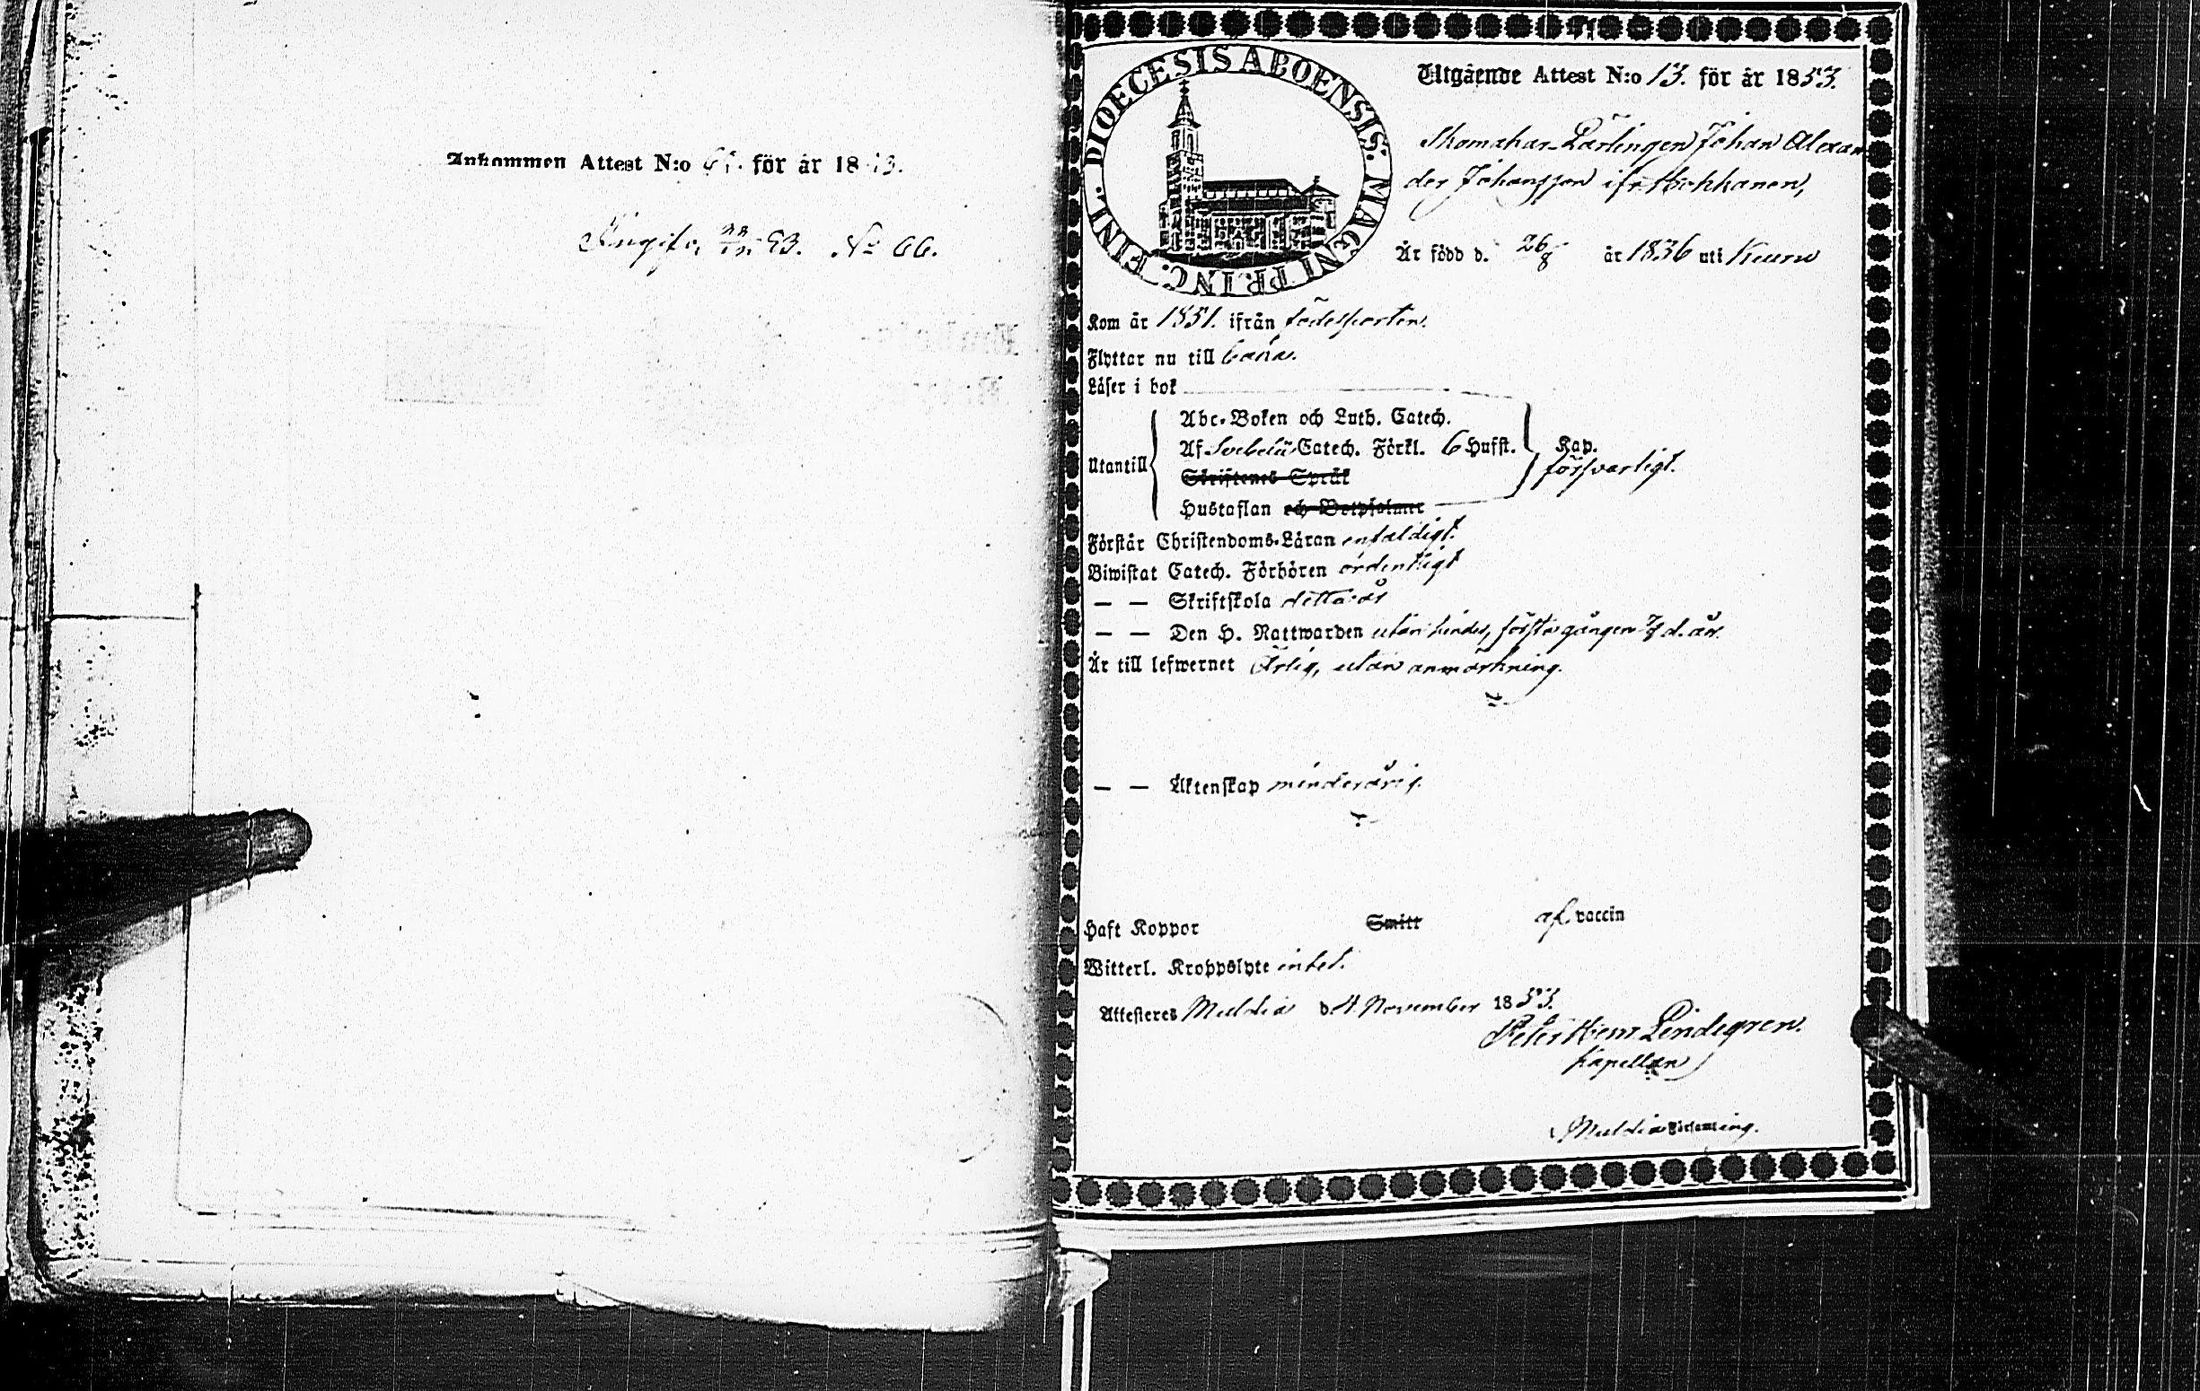 Ankommen Attest N:o för år 18 3.
Ingifv. 53. No 66.
DIOECESIS ABOENSIS. MAGNI PRINC. FINL.
Utgående Attest N:o 13. för år 1853.
Skomakar-Lärlingen Johan Alexan
der Johansson ifr.
Är född d. 26/8 år 1836 uti Keuru
Kom år 1851. ifrån födelseorten.
Flyttar nu till
Läser i bok
Utantill
Abc-Boken och Luth. Catech.
Af Svebelii Catech. Förkl. 6 Hufst. Kap.
försvarligt.
Skriftenes Språk
Hustaflan och Botpsalmer
Förstår Christendoms-Läran enfaldigt.
Biwistat Catech. Förhören ordentligt
— — Skriftskola detta år
— — Den H. Nattwarden utan hinder, första gången d. år.
Är till lefwernet Ärlig, utan anmärkning.
— — Äktenskap minderårig.
Haft Koppor Smitt af vaccin
Witterl. Kroppslyte intet.
Attesteras Muldia d 4 November 1853.
Peter Henr Lindegren.
Kapellan
Muldia Församling.